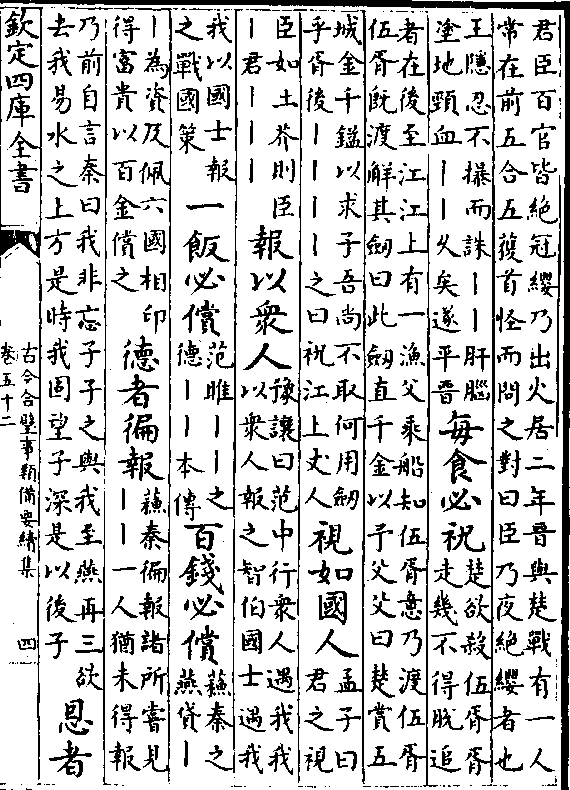 君臣百官皆絶冠纓乃出火居二年晋與楚戰有一人
常在前五合五獲首怪而問之對曰臣乃夜絶纓者也
王隱忍不㩧而誅丨丨肝腦
塗地頸血丨丨乆矣遂平晋
每食必祝
楚欲殺伍胥胥
走幾不得脫追
者在後至江江上有一漁父乘船知伍胥意乃渡伍胥
伍胥既渡解其劒曰此劒直千金以予父父曰楚賞五
城金千鎰以求子吾尚不取何用劒
乎胥後丨丨丨丨之曰祝江上丈人
視如國人
孟子曰
君之視
臣如土芥則臣
丨君丨丨丨
報以衆人
豫讓曰范中行衆人遇我我
以衆人報之智伯國士遇我
我以國士報
之戰國策
一飯必償
范睢丨丨之
德丨丨本傳
百錢必償
蘇秦之
燕貸丨
丨為資及佩六國相印
得富貴以百金償之
德者徧報
蘇秦徧報諸所嘗見
丨丨一人猶未得報
乃前自言秦曰我非忘子子之與我至燕再三欲
去我易水之上方是時我固望子深是以後子
恩者
欽定四庫全書
古今合璧事類備要續集
卷五十二
四